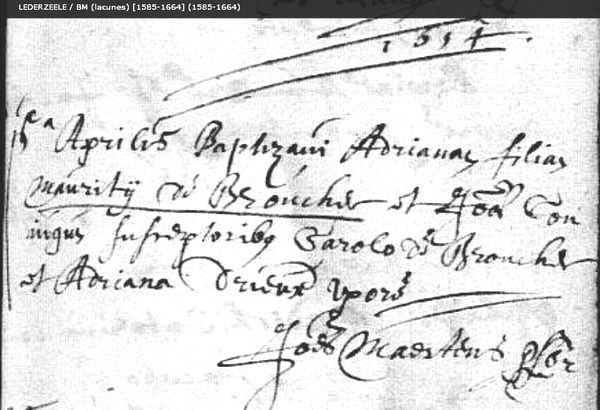 LEDERZEELE / BM (lacunes) [1585-1664] (1585-1664)
1614
Aprilis Baptizavi Adrianam filiam
Mauritij de Broucker et Joãe Con
ingus susceptoribus Carolo de Broucker
et Adriana Drieux uxore
Joẽs Maertens